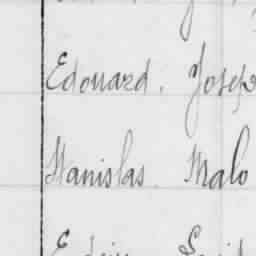 Edouard. Josep
Stanislas. Malo